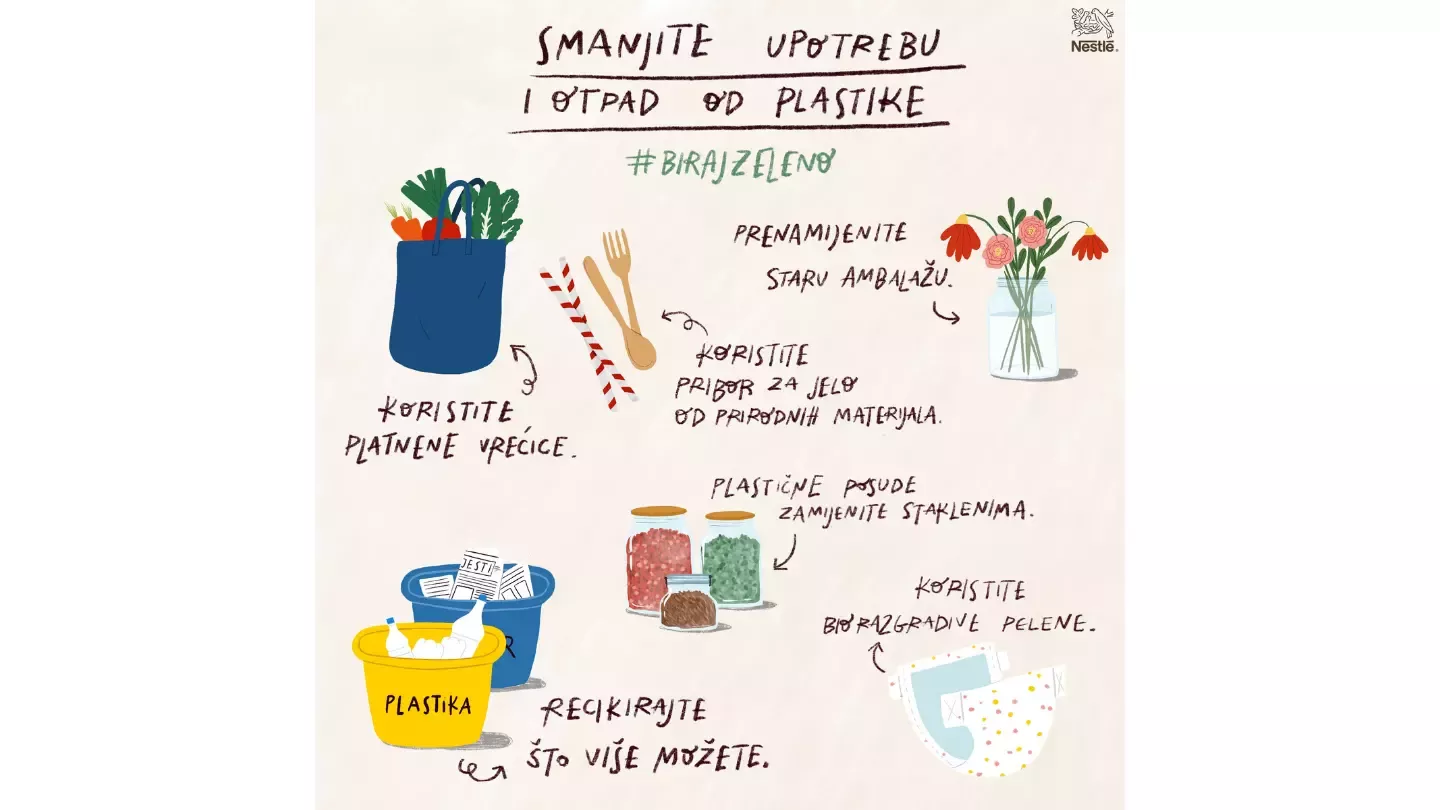 SMANJITE UPOTREBU
I OTPAD OD PLASTIKE
#BIRAJZELENO
Nestlé®
PRENAMIJENITE
STARU AMBALAŽU.
KORISTITE
PRIBOR ZA JELO
OD PRIRODNIH MATERIJALA.
KORISTITE
PLATNENE VREĆICE.
PLASTIČNE POSUDE
ZAMIJENITE STAKLENIMA.
KORISTITE
BIORAZGRADIVE PELENE.
JESTI
R
PLASTIKA
RECIKIRAJTE
ŠTO VIŠE MOŽETE.